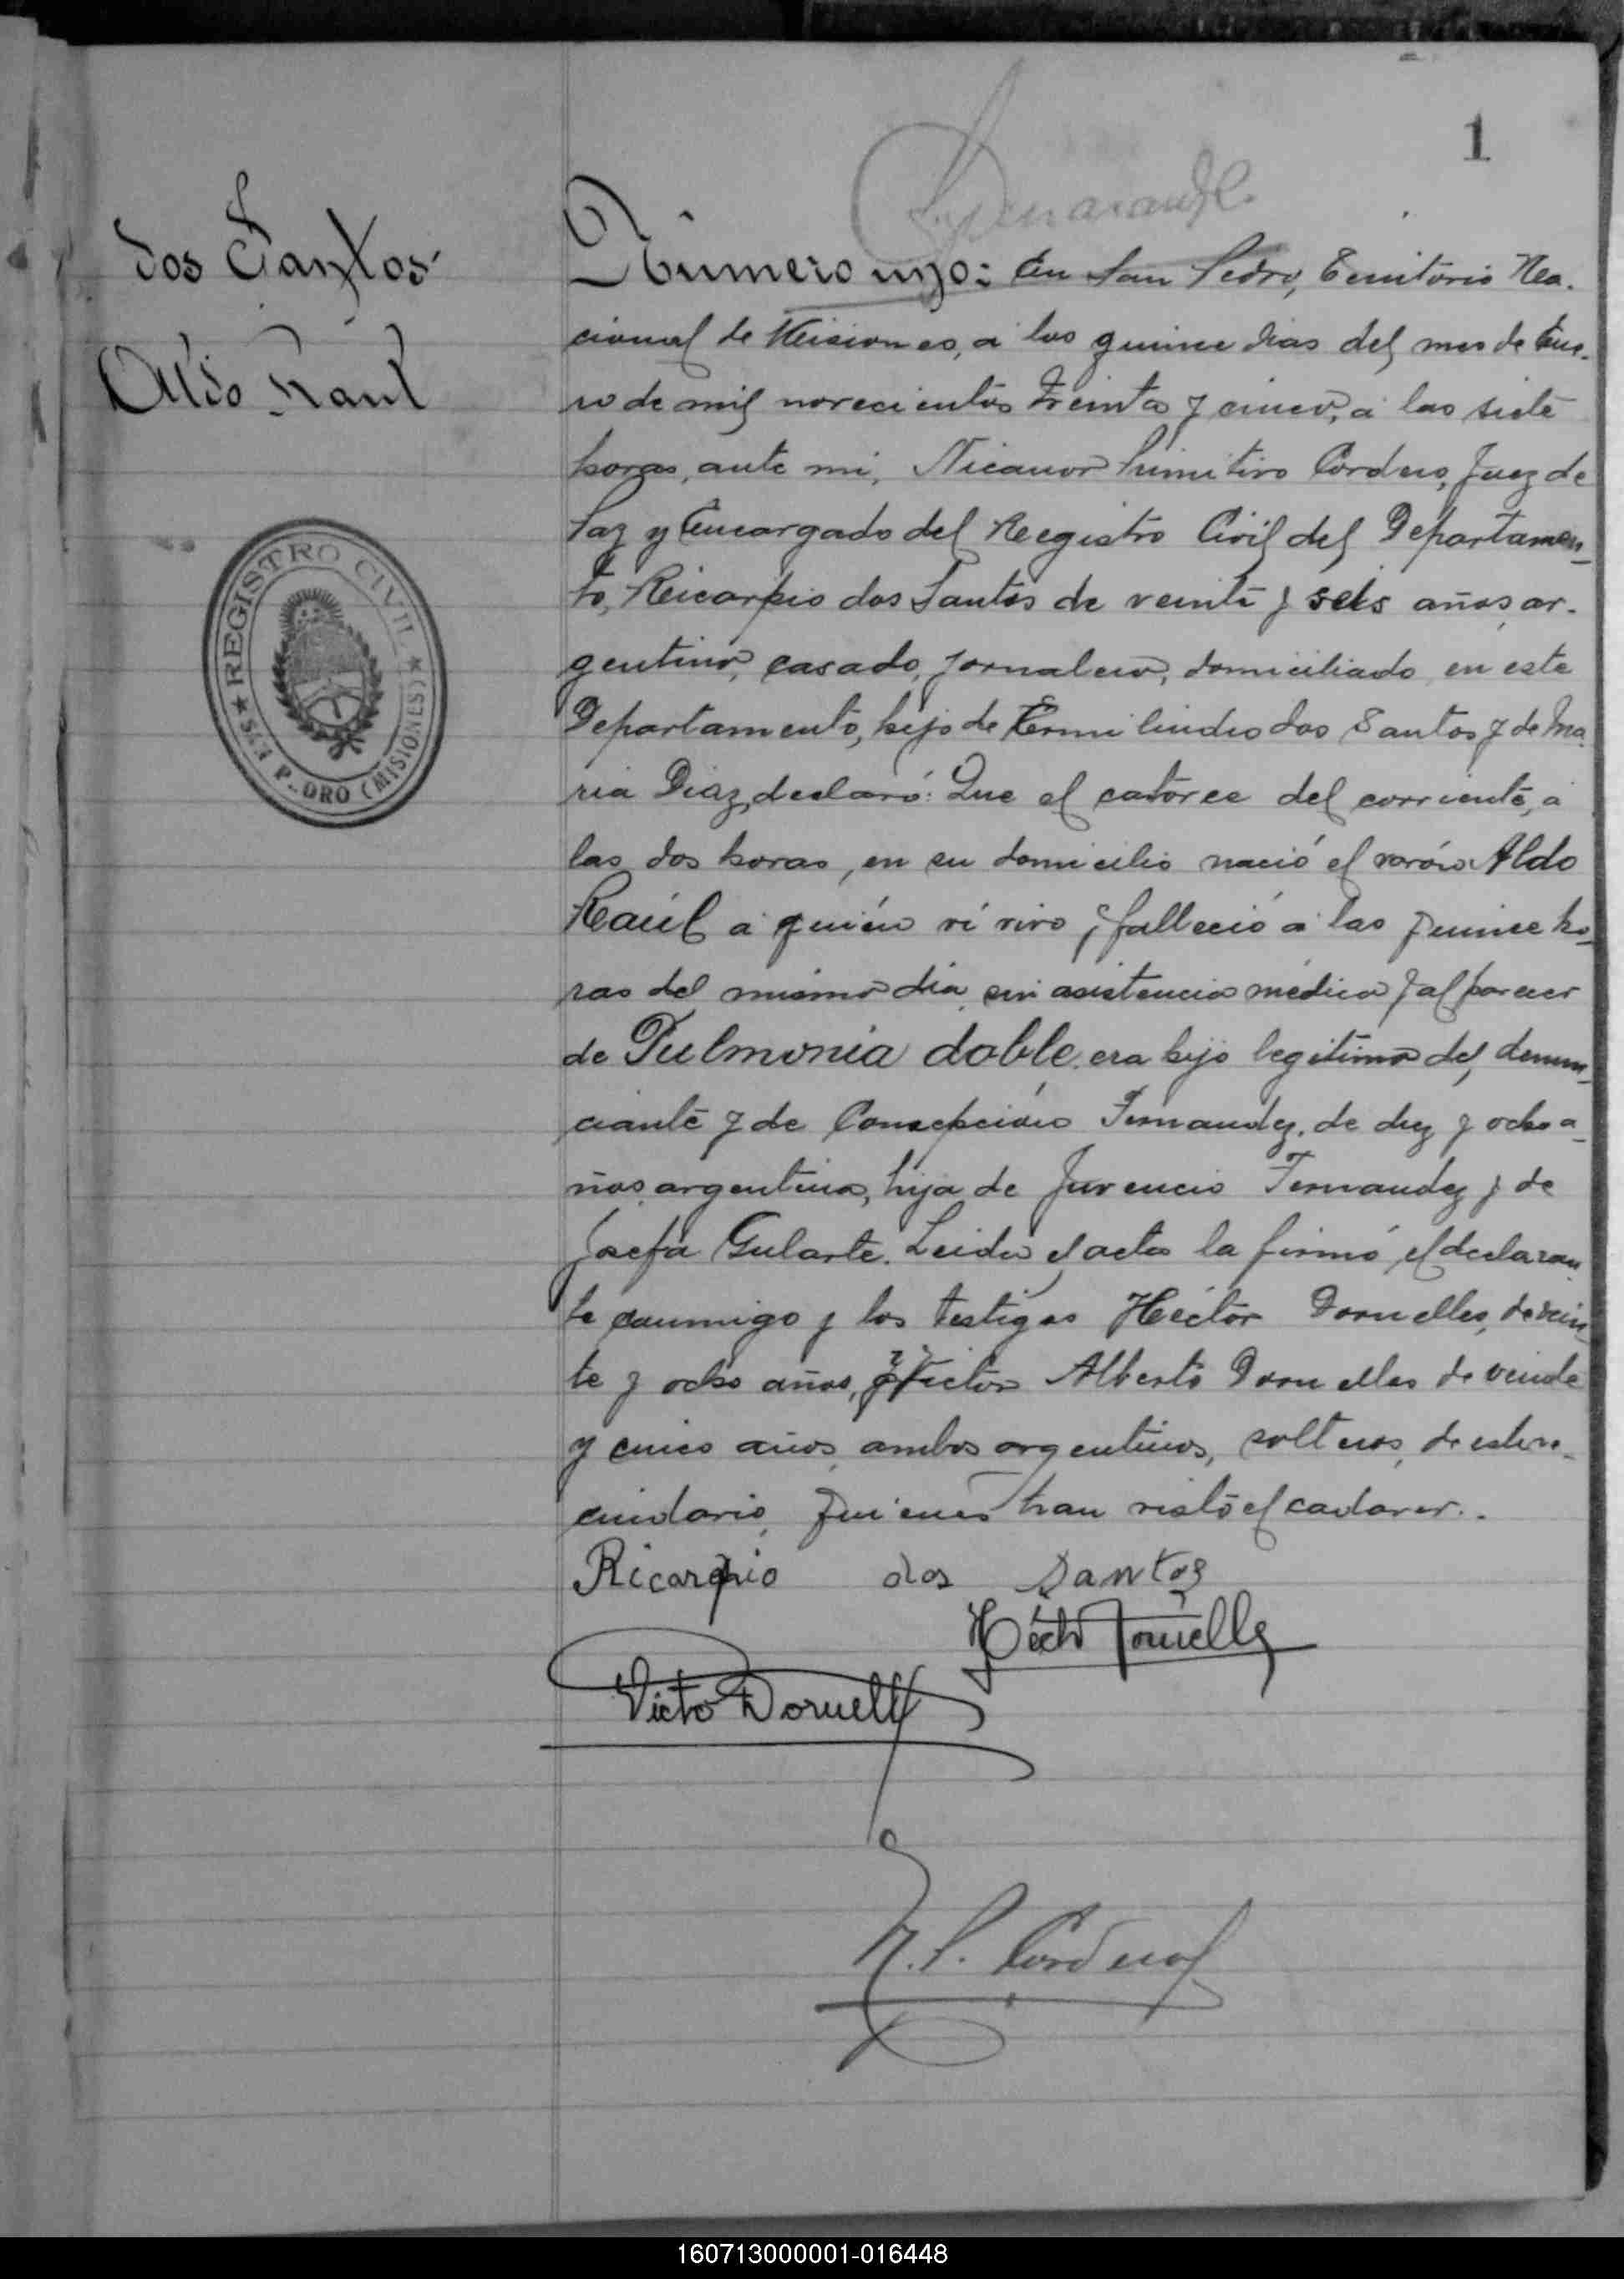 1
dos Santos
Aldo Raul
REGISTRO CIVIL
SAN PEDRO (MISIONES)
Número uno: En San Pedro, Territorio Na-
cional de Misiones, a los quince dias del mes de Ene-
ro de mil novecientos treinta y cinco, a las siete
horas, ante mi, Nicanor Primitivo Cordero, Juez de
Paz y Encargado del Registro Civil del Departamen-
to, Ricarpio dos Santos de veinte y seis años, ar-
gentino, casado, jornalero, domiciliado en este
Departamento, hijo de dos Santos y de Ma-
ria Diaz, declaró: Que el catorce del corriente, a
las dos horas, en su domicilio nació el varón Aldo
Raúl a quién ví vivo y falleció a las quince ho-
ras del mismo día, sin asistencia médica y al parecer
de Pulmonia doble. era hijo legitimo del denun-
ciante y de Consepción Fernandez, de diez y ocho a-
ños, argentina, hija de Juvencio Fernandez y de
Josefa Gularte. Leida el acta la firmó el declaran-
te conmigo y los testigos Héctor Dornelles, de vein-
te y ocho años, y Victor Alberto Dornelles de veinte
y cinco años, ambos argentinos, solteros, de este ve-
cindario, quienes han visto el cadaver..
Ricarpio dos Santos
Héctor Dornelles
Victor Dornelles
N. P. Cordero
160713000001-016448